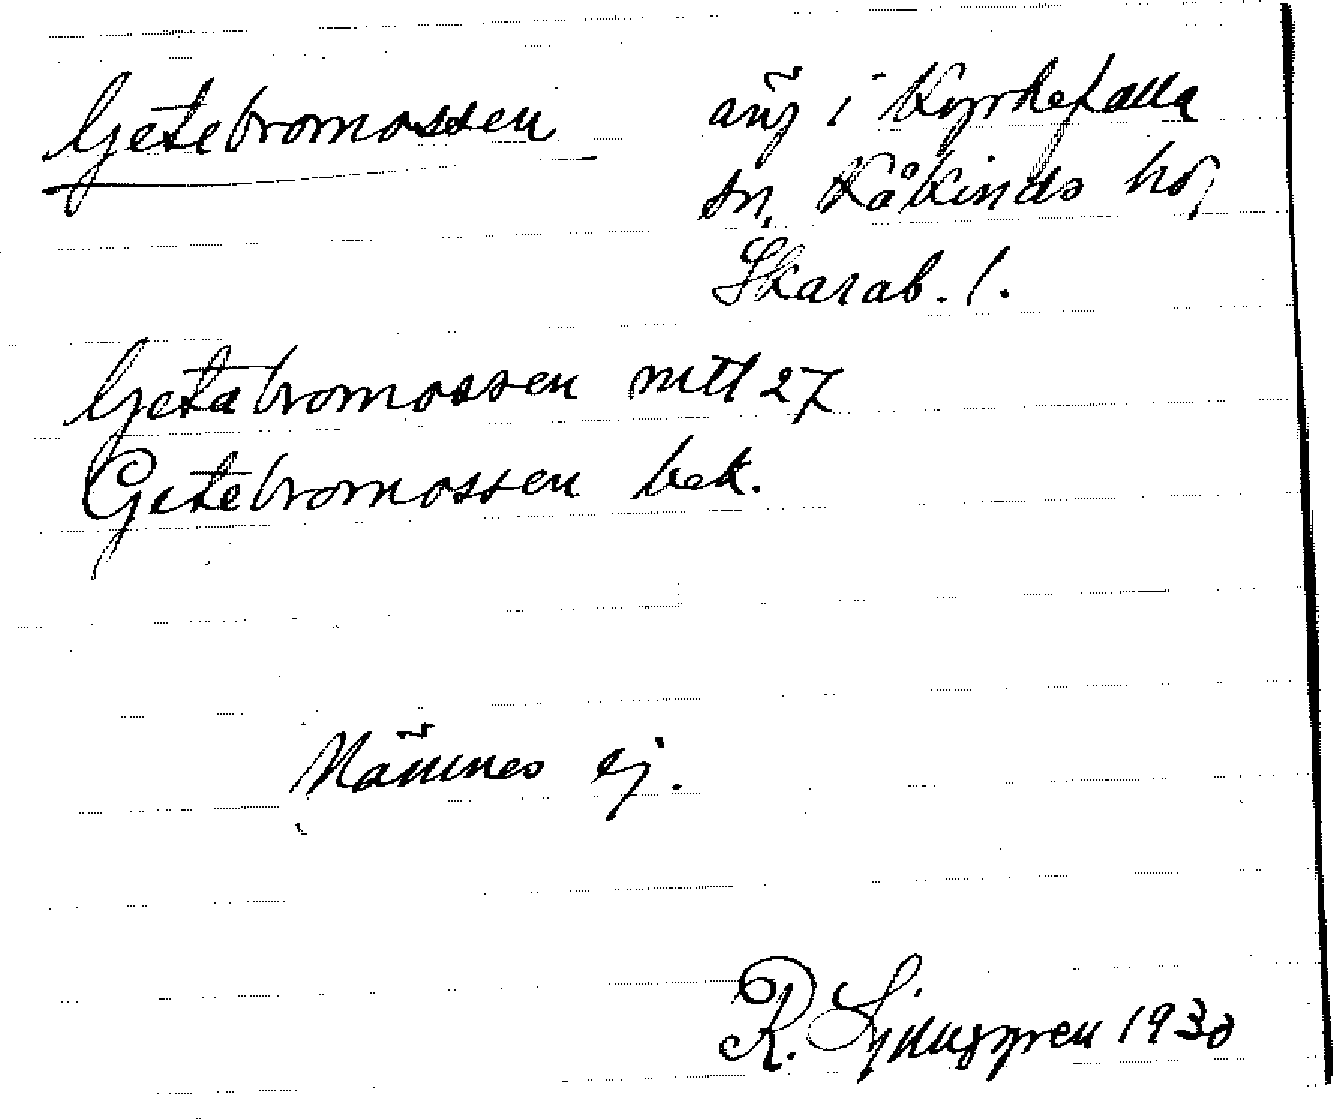 Getebromossen äng i Kyrkefalla
sn, Kåkinds hd,
Skarab. l.
Getabromossen mtl 27
Getebromossen bek.
Nämnes ej.
R. Ljunggren 1930